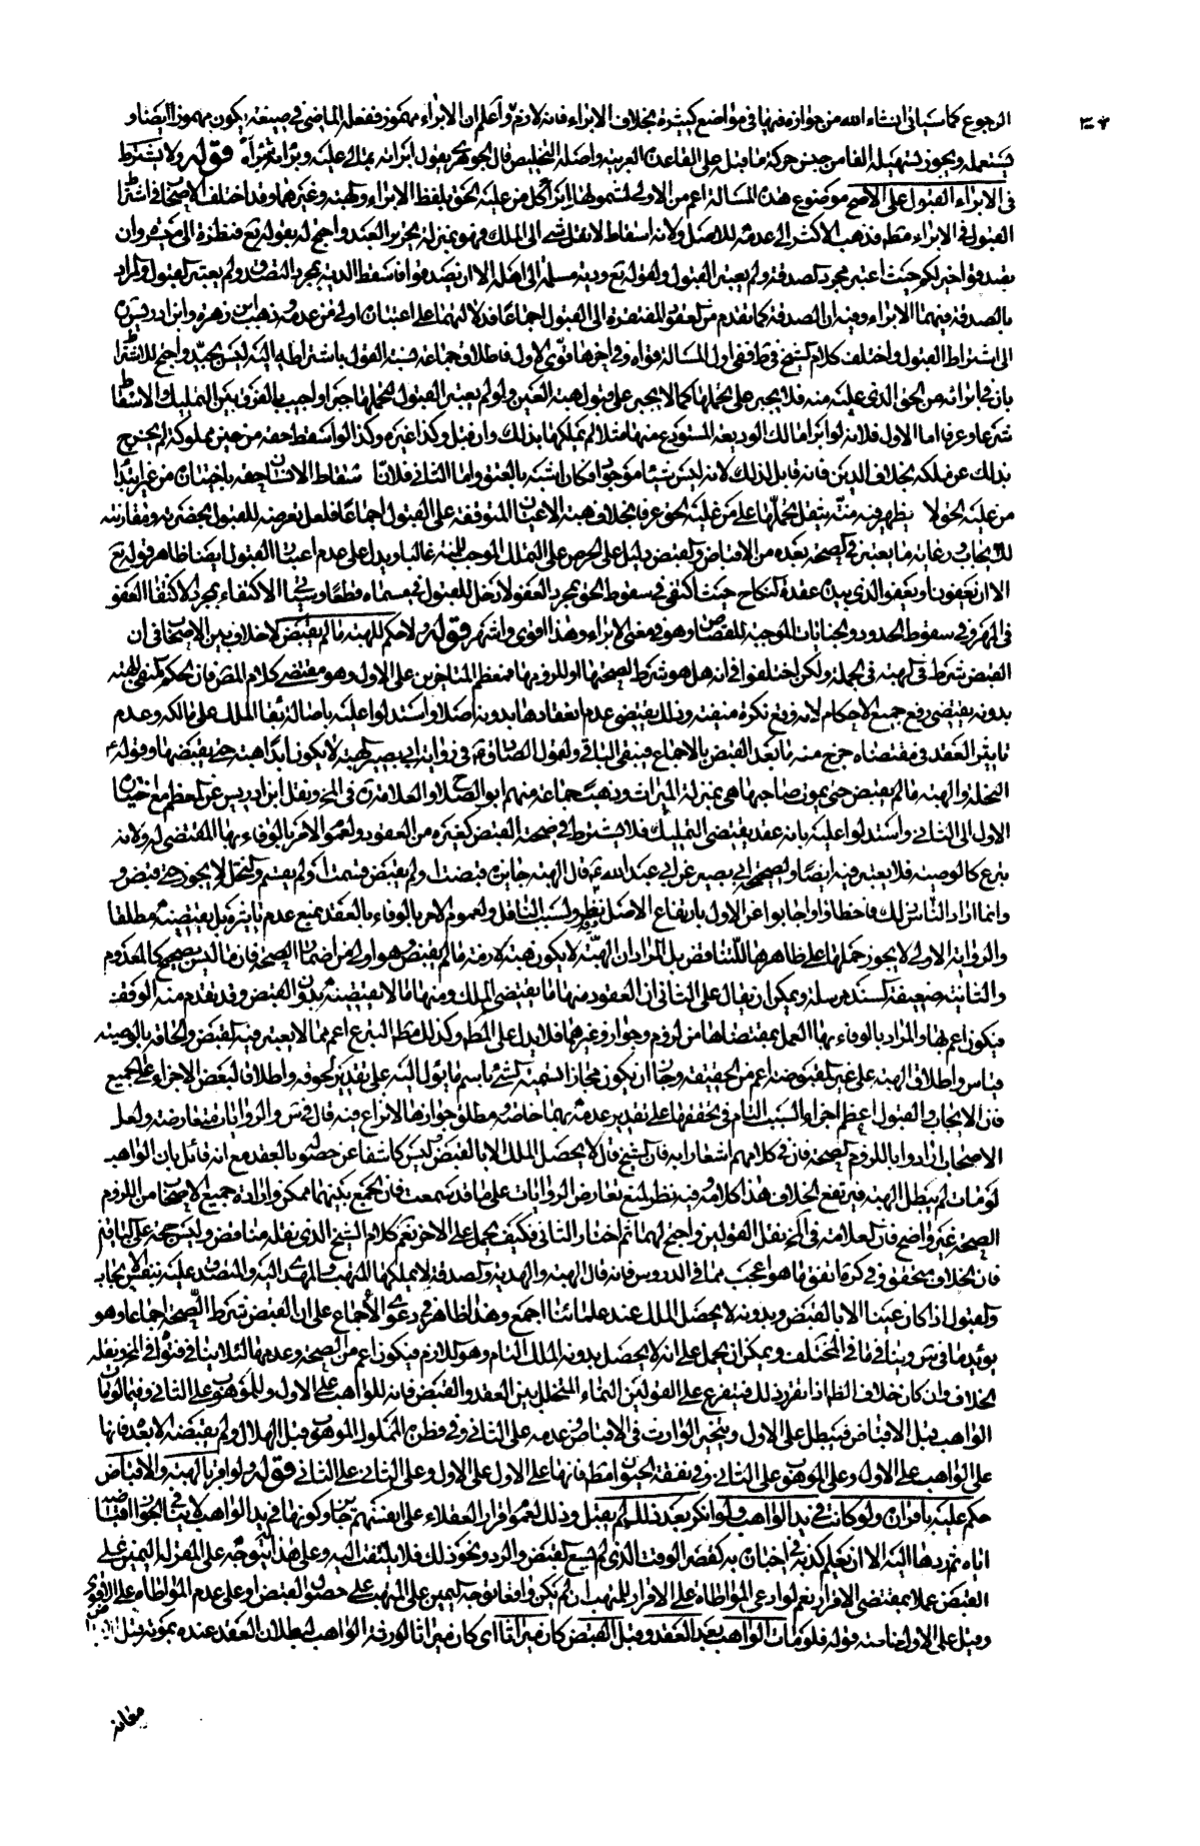 الرجوع كما سيأتي إن شاء الله من جوازه فيها في مواضع كثيرة بخلاف الابراء فانه لازم واعلم ان الابراء مهموز ففعله الماضي في صيغته يكون مهموزا ايضا و
يستعمله ويجوز تسهيله الفا من جنس حركة ما قبل على القاعدة العربية واصله التخليص قال الجوهري يقول ابراته بمالي عليه وبراته تبرأة قوله ولا يشترط
في الابراء القبول على الاصح موضوع هذه المسالة اعم من الاولى لشمولها ابراء كل من عليه الحق بلفظ الابراء والهبة وغيرهما وقد اختلف الاصحاب في اشتراط
القبول في الابراء مطلقا فذهب الاكثر الى عدمه للاصل ولانه اسقاط لا نقل شئ الى الملك فهو بمنزلة تحرير العبد واحتج له بقوله تع فنظرة الى ميسرة وان
تصدقوا خير لكم حيث اعتبر مجرد الصدقة ولم يعتبر القبول ولقوله تع ودية مسلمة الى اهله الا ان يصدقوا فاسقط الدية بمجرد التصدق ولم يعتبر القبول والمراد
بالصدقة فيهما الابراء وفيه ان الصدقة كما تقدم من العقود المفتقرة الى القبول اجماعا فدلالتهما على اعتباره اولى من عدمه وذهب ابن زهرة وابن ادريس
الى اشتراط القبول واختلف كلام الشيخ في ط ففي اول المسالة قواه وفي اخرها قوى الاول فاطلاق جماعة نسبة القول باشتراطه اليه ليس بجيد واحتج للاشتراط
بان في ابرائه من الحق الذي عليه منة فلا يجبر على تحملها كما لا يجبر على قبول هبة العين ولو لم يعتبر القبول لتحملها جبرا واجيب بالفرق بين التمليك والاسقاط
شرعا وعرفا اما الاول فلانه لو ابرا مالك الوديعة المستودع منها مثلا لم يملكها بذلك وان قبل وكذا غيره وكذا لو اسقط حقه من عين مملوكة لم يخرج
بذلك عن ملكه بخلاف الدين فانه قابل لذلك لانه ليس شيئا موجودا فكان اشبه بالعتق واما الثاني فلان اسقاط الانسان حقه باختياره من غير ابتداء
من عليه الحق لا يظهر فيه منة يثقل تحملها على من عليه الحق عرفا بخلاف هبة الاعيان المتوقفة على القبول اجماعا فلعل تعرضه للقبول بحضرته ومقارنته
للايجاب ورعاية ما يعتبر في الصحة بعده من الاقباض والقبض دليل على الحرص على التملك الموجب للمنة غالبا ويدل على عدم اعتبار القبول ايضا ظاهر قوله تع
الا ان يعفون او يعفو الذي بيده عقدة النكاح حيث اكتفى في سقوط الحق بمجرد العفو ولا دخل للقبول في مسماه قطعا الاكتفاء بمجرد الاكتفاء العفو
في المهر وفي سقوط الحدود والجنايات الموجبة للقصاص وهو في معنى الابراء وهذا اقوى واشهر قوله ولا حكم للهبة ما لم يقبض لا خلاف بين الاصحاب في ان
القبض شرط في الهبة في الجملة ولكن اختلفوا في انه هل هو شرط لصحتها او للزومها فمعظم المتاخرين على الاول وهو مقتضى كلام المصنف فان الحكم المنفي للهبة
بدونه يقتضي رفع جميع الاحكام لانه وقع نكرة منفية وذلك يقتضي عدم انعقادها بدونه اصلا واستدلوا عليه باصالة بقاء الملك على مالكه وعدم
تاثير العقد في مقتضاه خرج منه ما بعد القبض بالاجماع فيبقى الباقي ولقول الصادق ع في رواية ابي بصير الهبة لا يكون ابدا هبة حتى يقبضها وقوله ع
النحلة والهبة ما لم يقبض حتى يموت صاحبها هي بمنزلة الميراث وذهب جماعة منهم ابو الصلاح والعلامة في المخ ونقل ابن ادريس عن المعظم مع اختياره
الاول الى الثاني واستدلوا عليه بانه عقد يقتضي التمليك فلا يشترط في صحته القبض كغيره من العقود ولعموم الامر بالوفاء بها المقتضي له ولانه
تبرع كالوصية فلا يعتبر فيه ايضا ولصحيحة ابي بصير عن ابي عبد الله ع قال الهبة جايزة قبضت او لم يقبض قسمت او لم يقسم والنحل لا يجوز حتى يقبض و
وانما اراد الناس ذلك فاخطاوا واجابوا عن الاول بارتفاع الاصل بظهور السبب الناقل ولعموم الامر بالوفاء بالعقد بمنع عدم تاثيره بل يقتضيه مطلقا
والرواية الاولى لا يجوز حملها على ظاهرها للتناقض بل المراد ان الهبة لا يكون هبة لازمة ما لم يقبض وهو اولى من اضمار الصحة فان ما ليس بصحيح كالمعدوم
والثانية ضعيفة السند مرسلة ويمكن ان يقال على الثاني ان العقود منها ما يقتضي الملك ومنها ما لا يقتضيه بدون القبض وقد تقدم منه الوقف
فيكون اعم بها والمراد بالوفاء بها العمل بمقتضاها من لزوم وجواز وغيرهما فلا يدل على المط وكذلك مط التبرع اعم مما لا يعتبر فيه القبض والحاقه بالوصية
قياس واطلاق الهبة على غير المقبوضة اعم من الحقيقة وجاز ان يكون مجازا تسمية الشئ باسم ما يؤل اليه على تقدير لحوقه واطلاقا لبعض الاجزاء على الجميع
فان الايجاب والقبول اعظم اجزاء السبب التام في تحققها على تقدير عدمه بهما خاصة ومطلق جوازها لا نزاع فيه قال في س والروايات متعارضة ولعل
الاصحاب ارادوا باللزوم الصحة فان في كلامهم اشعارا به فان الشيخ قال لا يحصل الملك الا بالقبض وليس كاشفا عن حصوله بالعقد مع انه قائل بان الواهب
لو مات لم يبطل الهبة فيرتفع الخلاف هذا كلامه وفيه نظر لمنع تعارض الروايات على ما قد سمعت فان الجمع بينهما ممكن وارادة جميع الاصحاب من اللزوم
الصحة غير واضح فان العلامة في المخ نقل القولين واحتج لهما ثم اختار الثاني فكيف يحمل على الاخر نعم كلام الشيخ الذي نقله متناقض وليس حجة على الباقين
فان الخلاف متحقق وفي كرة اتفق ما هو اعجب مما في الدروس فانه قال الهبة والهدية والصدقة لا يملكها المتهب والمهدى اليه والمتصدق عليه بنفس الايجاب
والقبول اذا كان عينا الا بالقبض وبدونه لا يحصل الملك عند علمائنا اجمع وهذا ظاهر في دعوى الاجماع على ان القبض شرط الصحة اجماعا وهو
يؤيد ما في س وينافي ما في المختلف ويمكن ان يحمل على انه لا يحصل بدونه الملك التام وهو اللازم فيكون اعم من الصحة وعدمها لئلا ينافي فتواه في المخ ونقله
الخلاف وان كان خلاف الظ اذا تقرر ذلك فيتفرع على القولين النماء المتخلل بين العقد والقبض فانه للواهب على الاول وللموهوب على الثاني وفيما لو مات
الواهب قبل الاقباض فيبطل على الاول ويتخير الوارث في الاقباض وعدمه على الثاني وفي فطرة المملوك الموهوب قبل الهلال ولم يقبضه الا بعده فانها
على الواهب على الاول وعلى الموهوب على الثاني وفي نفقة الحيوان مط فانها على الاول على الاول وعلى الثاني على الثاني قوله ولو اقر بالهبة والاقباض
حكم عليه باقراره ولو كانت في يد الواهب ولو انكر بعد ذلك لم يقبل وذلك لعموم اقرار العقلاء على انفسهم جايز وكونها في يد الواهب لا ينافيه لجواز اقباضه
اياه ثم ردها اليه الا ان يعلم كذبه في اخباره به كقصر الوقت الذي لم يسع القبض والرد ونحو ذلك فلا يلتفت اليه وعلى هذا لا يتوجه على المقر له اليمين على
القبض عملا بمقتضى الاقرار نعم لو ادعى المواطاة على الاقرار للمتهب وان لم يكن واقعا توجه اليمين على المتهب على حصول القبض او على عدم المواطاة على الاقوى
وقيل على الاول خاصة قوله فلو مات الواهب بعد العقد وقبل القبض كان ميراثا اي كان ميراثا لورثة الواهب لبطلان العقد عنده بموته قبل